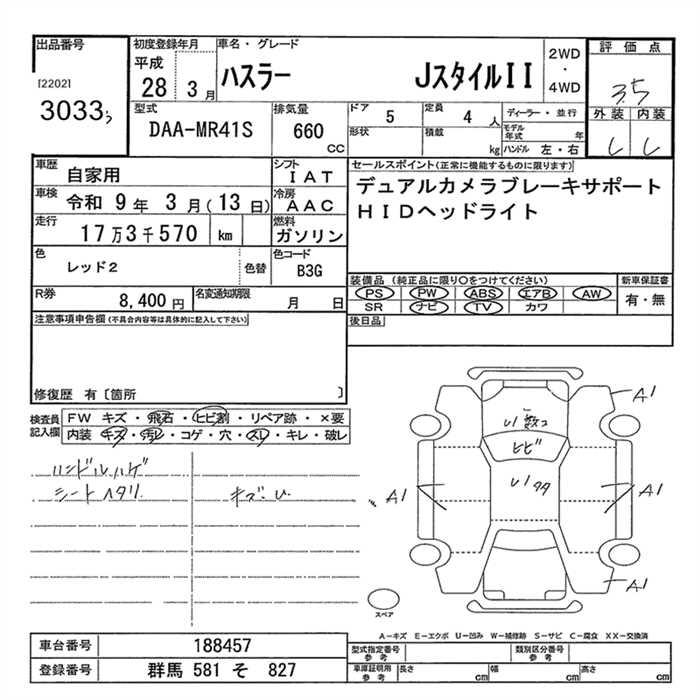 出品番号
[2202]
3033
初度登録年月
平成
28 3 月
車名・グレード
ハスラー JスタイルII
2WD
・
4WD
評価点
3.5
外装 内装
型式
DAA-MR41S
排気量
660
CC
ドア
5
定員
4 人
形状
積載
kg
ディーラー・並行
モデル年式 年
ハンドル 左・右
車歴
自家用
シフト
IAT
車検
令和 9 年 3 月(13 日)
冷房
AAC
走行
17万3千570 km
燃料
ガソリン
色
レッド2
色替
色コード
B3G
R券
8,400 円
名変通知期限
月 日
セールスポイント(正常に機能するものに限ります)
デュアルカメラブレーキサポート
HIDヘッドライト
装備品(純正品に限り○をつけてください)
PS PW ABS エアB AW
SR ナビ TV カワ
新車保証書
有・無
後日品
注意事項申告欄(不具合内容等は具体的に記入して下さい)
修復歴 有〔箇所 〕
検査員
記入欄
FW キズ・飛石・ヒビ割・リペア跡・×要
内装 キズ・汚レ・コゲ・穴・スレ・キレ・破レ
ハンドルハゲ
シートヘタリ
A1
ヒビ
A1
A1
A1
スペア
A―キズ E―エクボ U―凹み W―補修跡 S―サビ C―腐食 XX―交換済
車台番号
188457
登録番号
群馬 581 そ 827
型式指定番号
参考
類別区分番号
参考
車庫証明用
参考
長さ cm
幅 cm
高さ cm